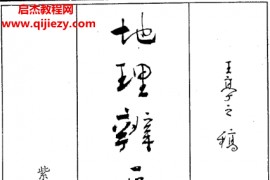 启杰教程网
www.qijiezy.com
王亭之稿
地理辨正
紫